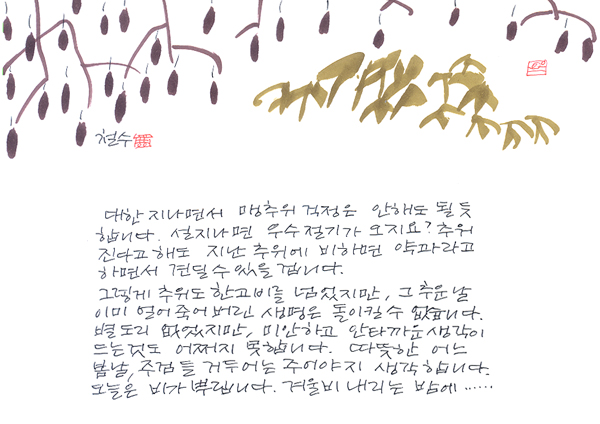 철수
대한 지나면서 맹추위 걱정은 안해도 될 듯
합니다. 설지나면 우수 절기가 오지요? 추위
진다고 해도 지난 추위에 비하면 약과라고
하면서 견딜 수 있을 겁니다.
그렇게 추위도 한고비를 넘겼지만, 그 추운 날
이미 얼어 죽어버린 생명은 돌이킬 수 없습니다.
별 도리 없었지만, 미안하고 안타까운 생각이
드는 것도 어쩌지 못합니다. 따뜻한 어느
봄날, 주검들 거두어는 주어야지 생각합니다.
오늘은 비가 뿌립니다. 겨울비 내리는 밤에……